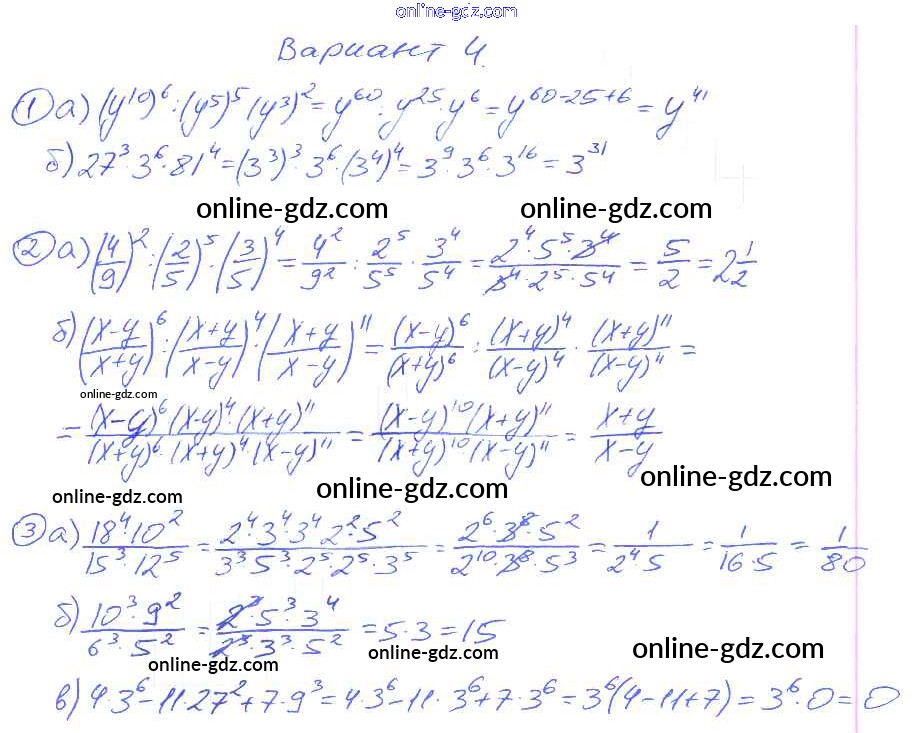 online-gdz.com
Вариант 4.
① а) (y¹⁹)⁶ : (y⁵)⁵ (y³)² = y⁶⁰ : y²⁵ · y⁶ = y⁶⁰⁻²⁵⁺⁶ = y⁴¹
б) 27³ · 3⁶ · 81⁴ = (3³)³ · 3⁶ · (3⁴)⁴ = 3⁹ · 3⁶ · 3¹⁶ = 3³¹
online-gdz.com online-gdz.com
② а) (4/9)² : (2/5)⁵ · (3/5)⁴ = 4²/9² : 2⁵/5⁵ · 3⁴/5⁴ = 2⁴ · 5⁵ · 3⁴ / 3⁴ · 2⁵ · 5⁴ = 5/2 = 2 1/2
б) ((x-y)/(x+y))⁶ : ((x+y)/(x-y))⁴ · ((x+y)/(x-y))¹¹ = (x-y)⁶/(x+y)⁶ : (x+y)⁴/(x-y)⁴ · (x+y)¹¹/(x-y)¹¹ =
online-gdz.com
= (x-y)⁶ (x-y)⁴ · (x+y)¹¹ / (x+y)⁶ · (x+y)⁴ · (x-y)¹¹ = (x-y)¹⁰ (x+y)¹¹ / (x+y)¹⁰ · (x-y)¹¹ = x+y / x-y
online-gdz.com online-gdz.com online-gdz.com
③ а) 18⁴ · 10² / 15³ · 12⁵ = 2⁴ · 3⁴ · 3⁴ · 2² · 5² / 3³ · 5³ · 2⁵ · 2⁵ · 3⁵ = 2⁶ · 3⁸ · 5² / 2¹⁰ · 3⁸ · 5³ = 1 / 2⁴ · 5 = 1 / 16 · 5 = 1/80
б) 10³ · 9² / 6³ · 5² = 2³ · 5³ · 3⁴ / 2³ · 3³ · 5² = 5 · 3 = 15
online-gdz.com online-gdz.com online-gdz.com
в) 4 · 3⁶ - 11 · 27² + 7 · 9³ = 4 · 3⁶ - 11 · 3⁶ + 7 · 3⁶ = 3⁶ (4 - 11 + 7) = 3⁶ · 0 = 0